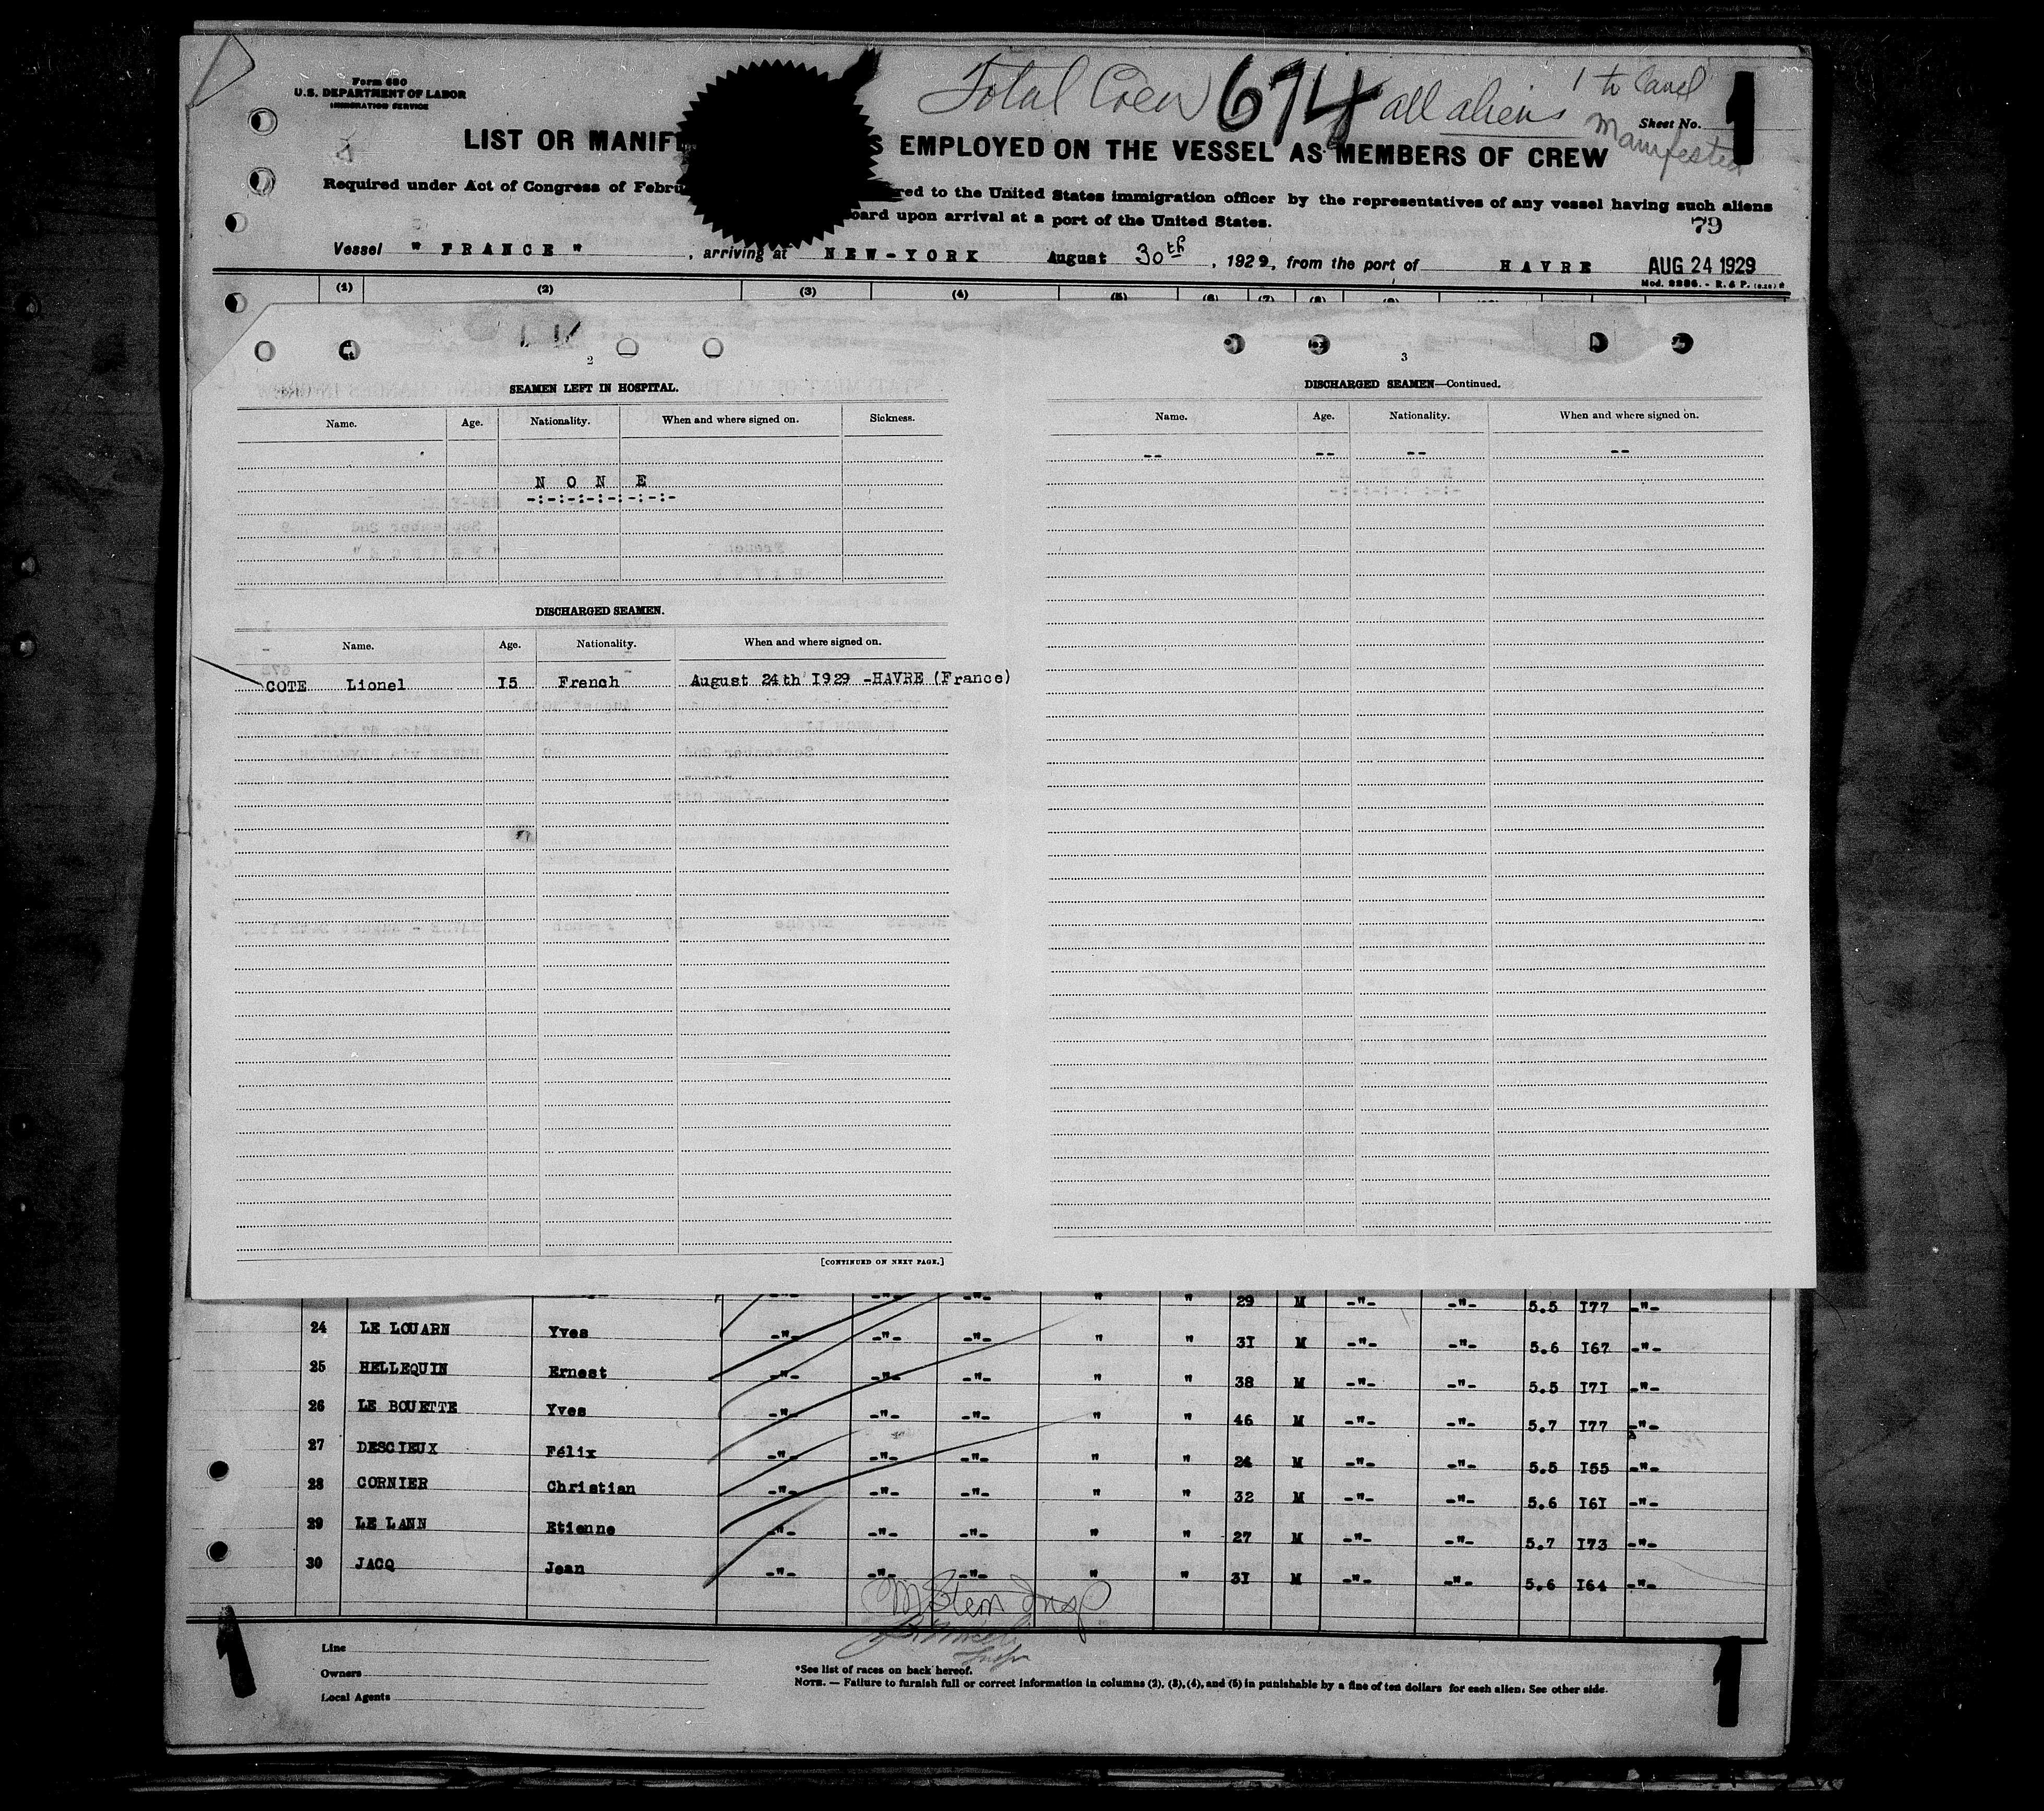 Form 680
U.S. DEPARTMENT OF LABOR
IMMIGRATION SERVICE
Total Crew 674 all aliens 1 to Manifested
Sheet No. 1
LIST OR MANIF S EMPLOYED ON THE VESSEL AS MEMBERS OF CREW
Required under Act of Congress of Febru red to the United States immigration officer by the representatives of any vessel having such aliens
oard upon arrival at a port of the United States.
79
Vessel "FRANCE", arriving at NEW-YORK August 30th, 1929, from the port of HAVRE AUG 24 1929
Mod. 2286. - R. & P.
(1) (2) (3) (4) (5) (6) (7) (8)
2
SEAMEN LEFT IN HOSPITAL.
Name. Age. Nationality. When and where signed on. Sickness.
NONE
-:-:-:-:-:-:-:-
DISCHARGED SEAMEN.
Name. Age. Nationality. When and where signed on.
COTE Lionel I5 French August 24th I929 -HAVRE (France)
[CONTINUED ON NEXT PAGE.]
3
DISCHARGED SEAMEN—Continued.
Name. Age. Nationality. When and where signed on.
-- -- -- --
-"- -"- -"- " " 29 M -"- -"- 5.5 I77 -"-
24 LE LOUARN Yves -"- -"- -"- " " 3I M -"- -"- 5.6 I67 -"-
25 HELLEQUIN Ernest -"- -"- -"- " " 38 M -"- -"- 5.5 I7I -"-
26 LE BOUETTE Yves -"- -"- -"- " " 46 M -"- -"- 5.7 I77 -"-
27 DESCIEUX Félix -"- -"- -"- " " 24 M -"- -"- 5.5 I55 -"-
28 CORNIER Christian -"- -"- -"- " " 32 M -"- -"- 5.6 I6I -"-
29 LE LANN Etienne -"- -"- -"- " " 27 M -"- -"- 5.7 I73 -"-
30 JACQ Jean -"- -"- -"- " " 3I M -"- -"- 5.6 I64 -"-
M Stern Insp
1
Line
Owners
Local Agents
*See list of races on back hereof.
NOTE. — Failure to furnish full or correct information in columns (2), (3), (4), and (5) in punishable by a fine of ten dollars for each alien. See other side.
1